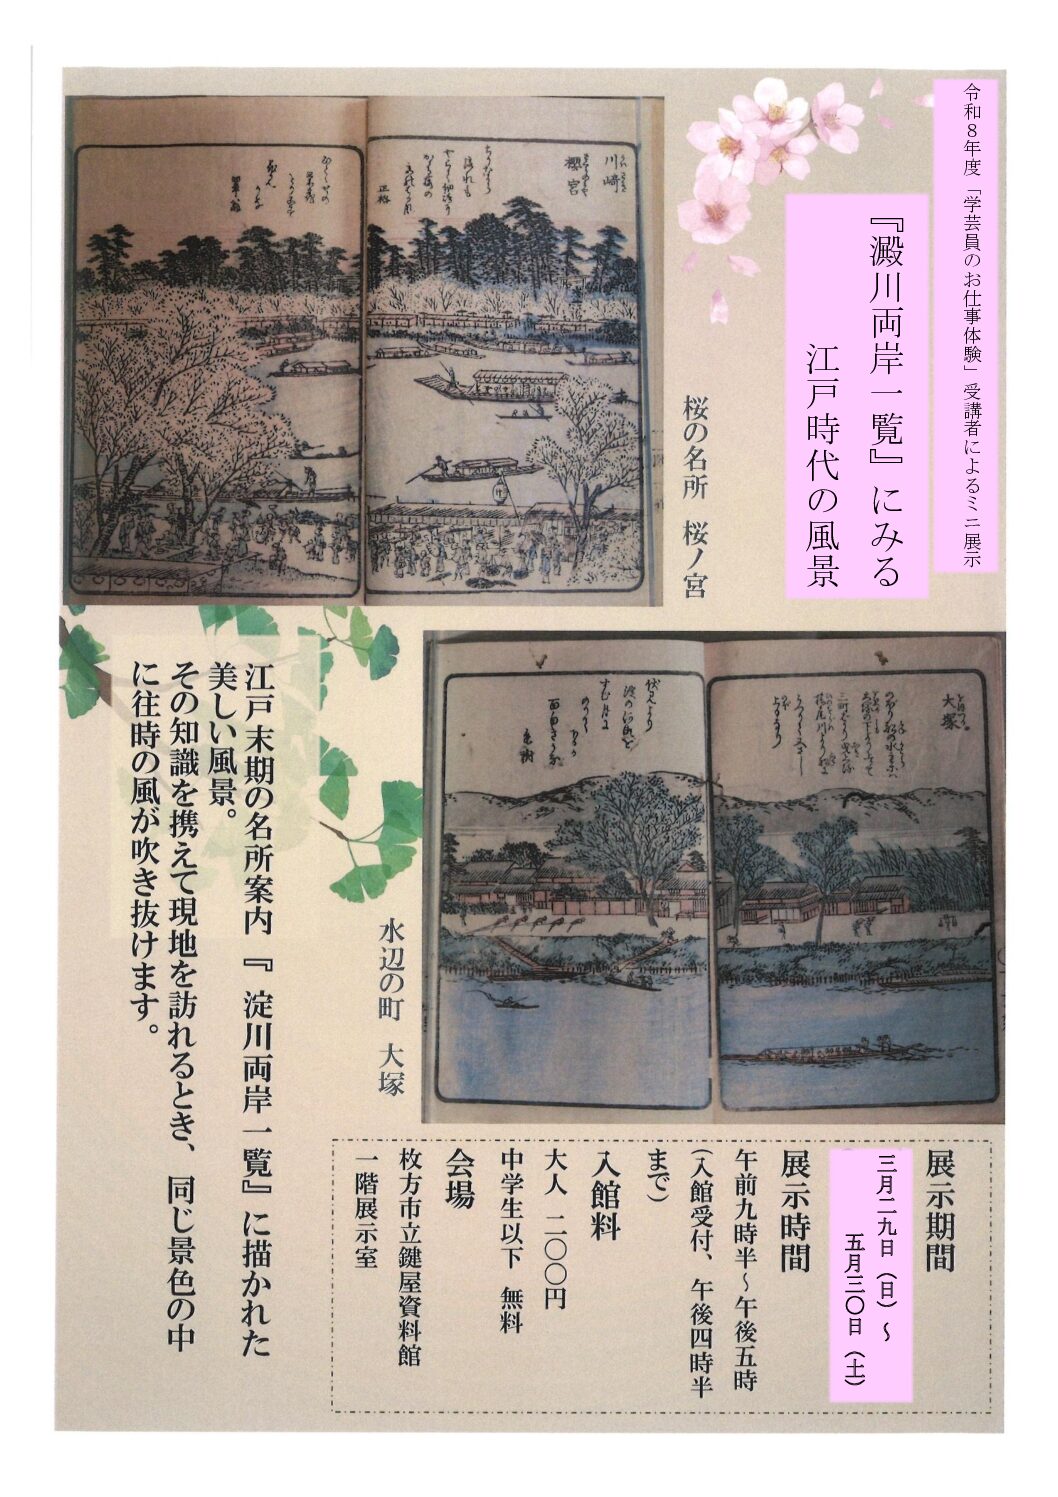 令和８年度「学芸員のお仕事体験」受講者によるミニ展示
『澱川両岸一覧』にみる
江戸時代の風景
桜の名所　桜ノ宮
川崎
櫻宮
正格
大塚
水辺の町　大塚
江戸末期の名所案内『淀川両岸一覧』に描かれた
美しい風景。
その知識を携えて現地を訪れるとき、同じ景色の中
に往時の風が吹き抜けます。
展示期間
三月二九日（日）～
五月三〇日（土）
展示時間
午前九時半～午後五時
（入館受付、午後四時半
まで）
入館料
大人　二〇〇円
中学生以下　無料
会場
枚方市立鍵屋資料館
一階展示室